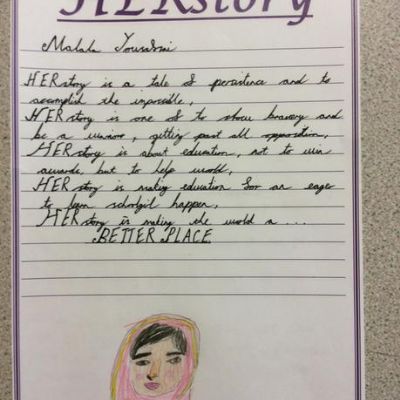 HERstory
Malala Yousafzai
HERstory is a tale of persistence and to
accomplish the impossible,
HERstory is one of to show bravery and
be a warrior, getting past all opposition,
HERstory is about education, not to win
awards, but to help world,
HERstory is making education for an eager
to learn schoolgirl happen,
HERstory is making the world a ...
BETTER PLACE